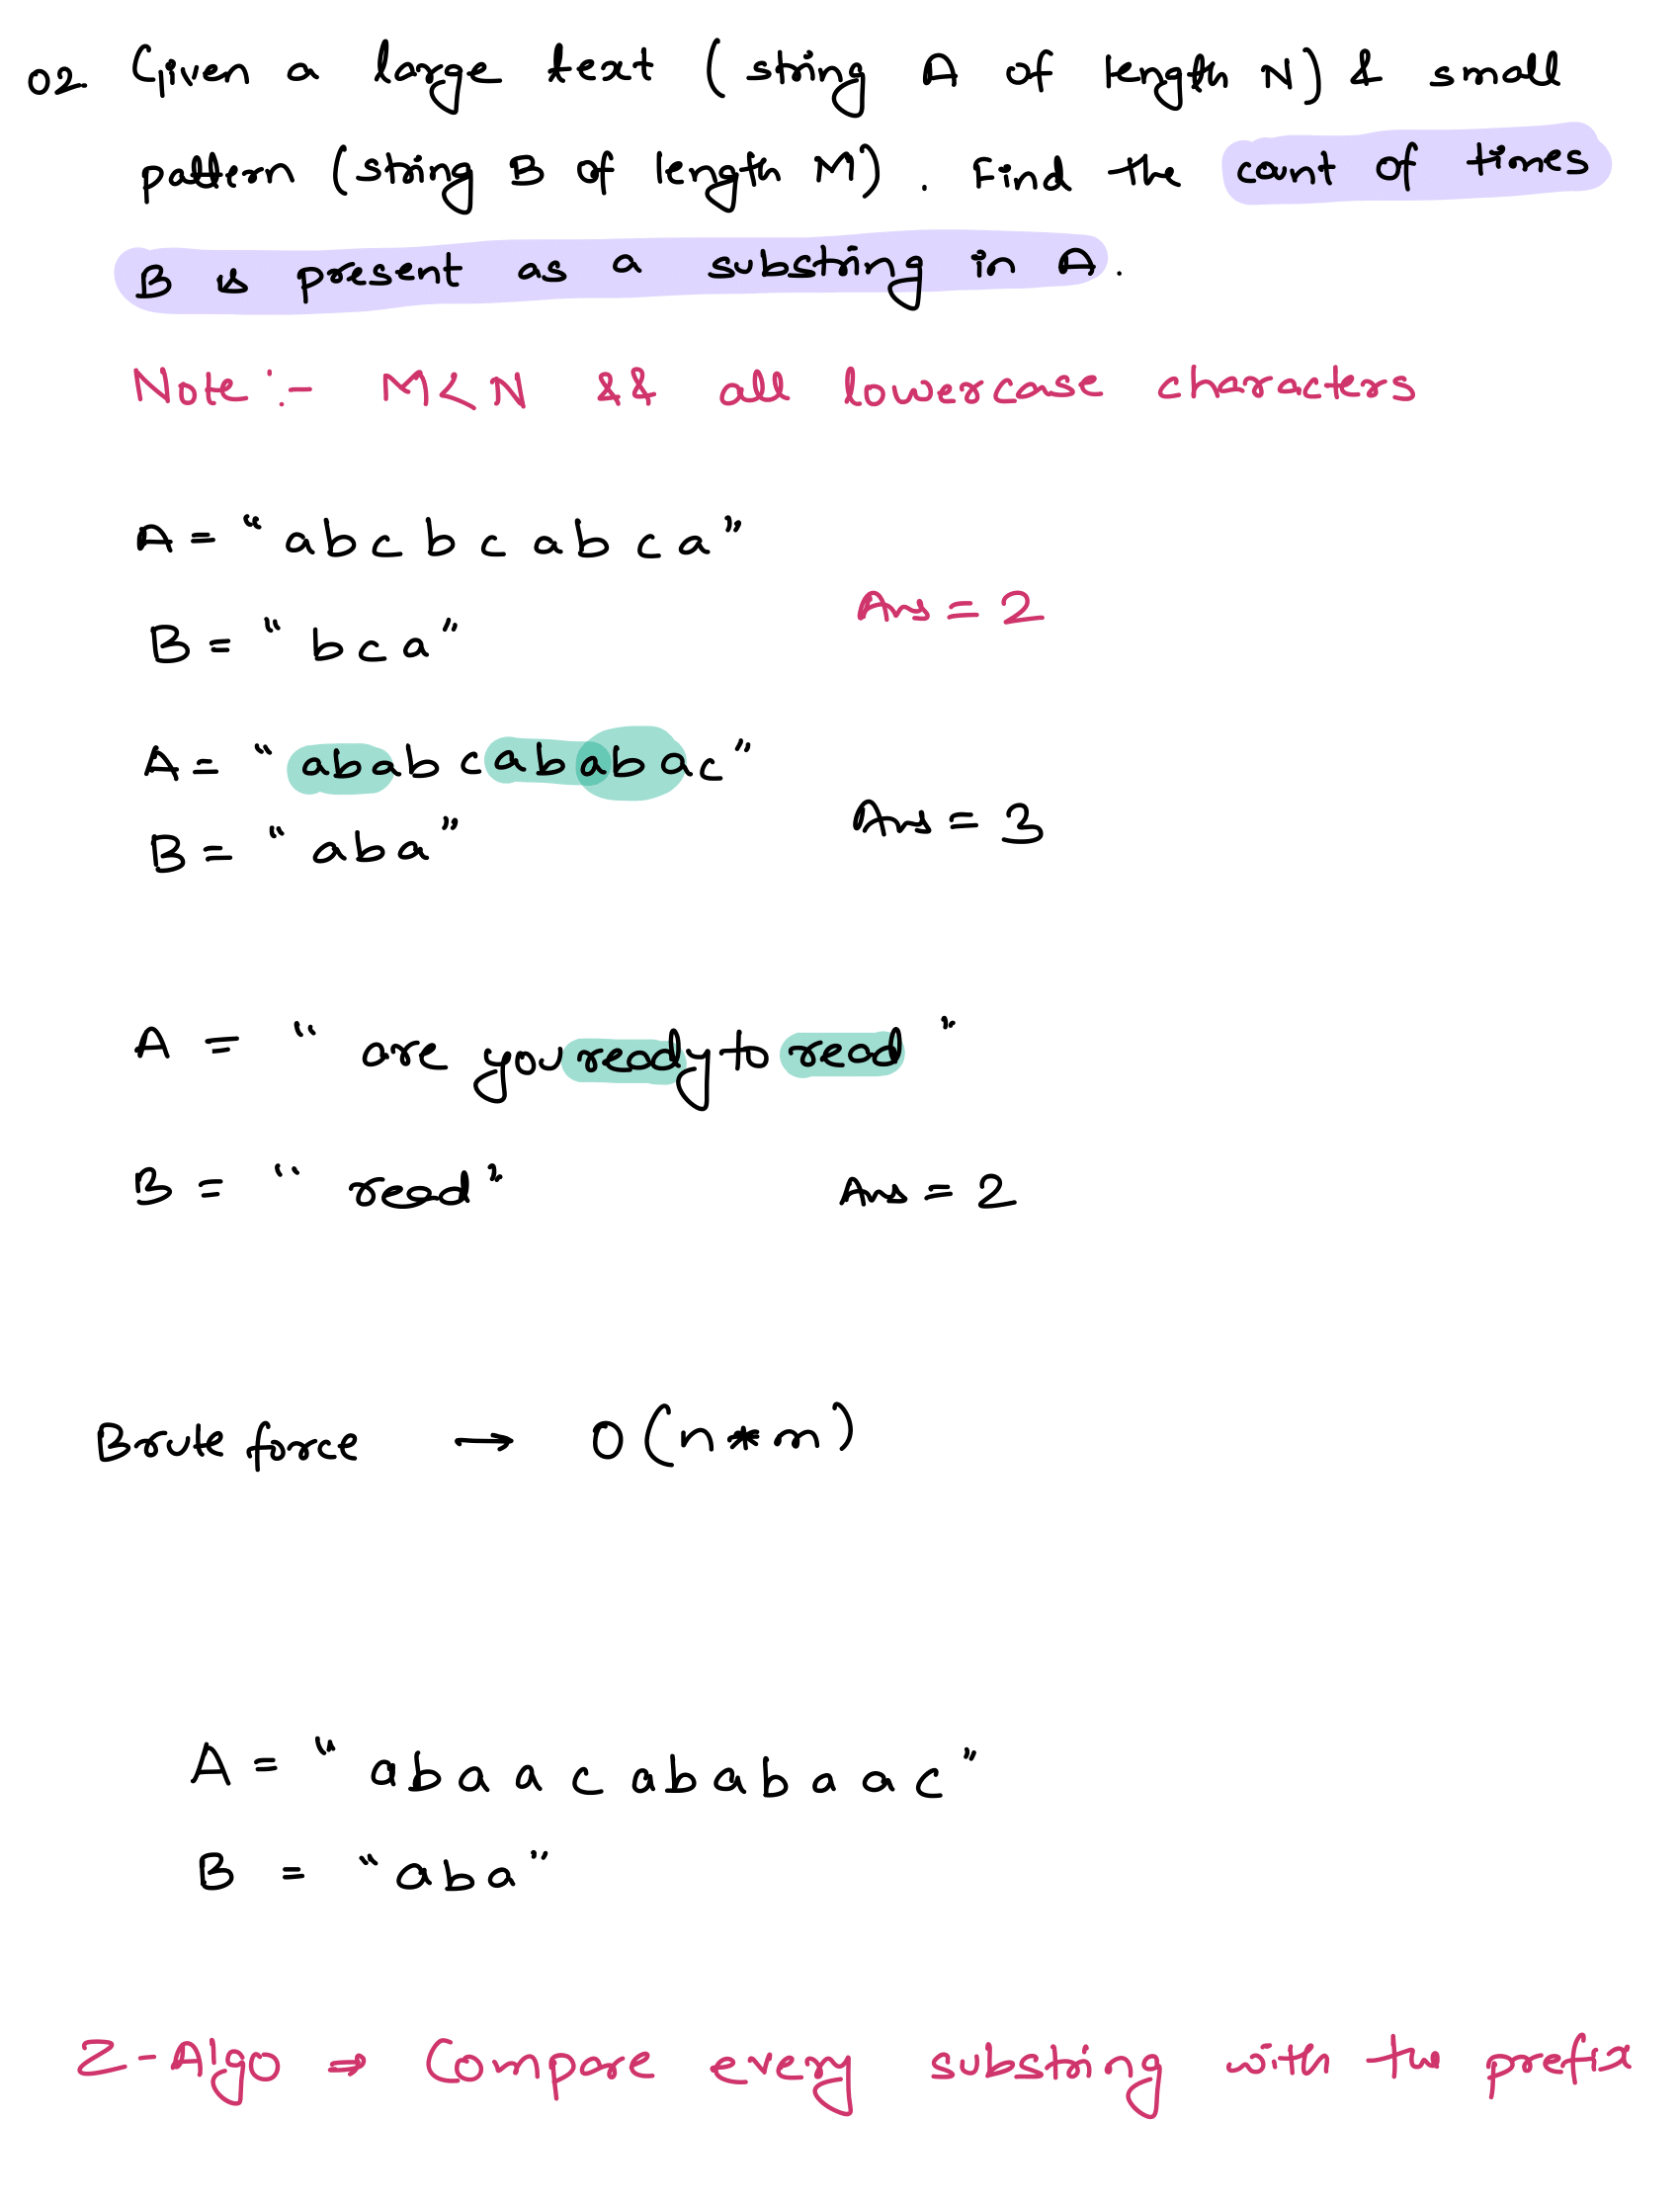 02. Given a large text (string A of length N) & small
pattern (string B of length M). Find the count of times
B is present as a substring in A.
Note :- M<N && all lowercase characters
A = "abcbcabca"
Ans = 2
B = "bca"
A = "ababcababac"
Ans = 3
B = "aba"
A = "are you ready to read"
B = "read"
Ans = 2
Brute force → O(n*m)
A = "abaacababaac"
B = "aba"
Z-Algo ⇒ Compare every substring with the prefix